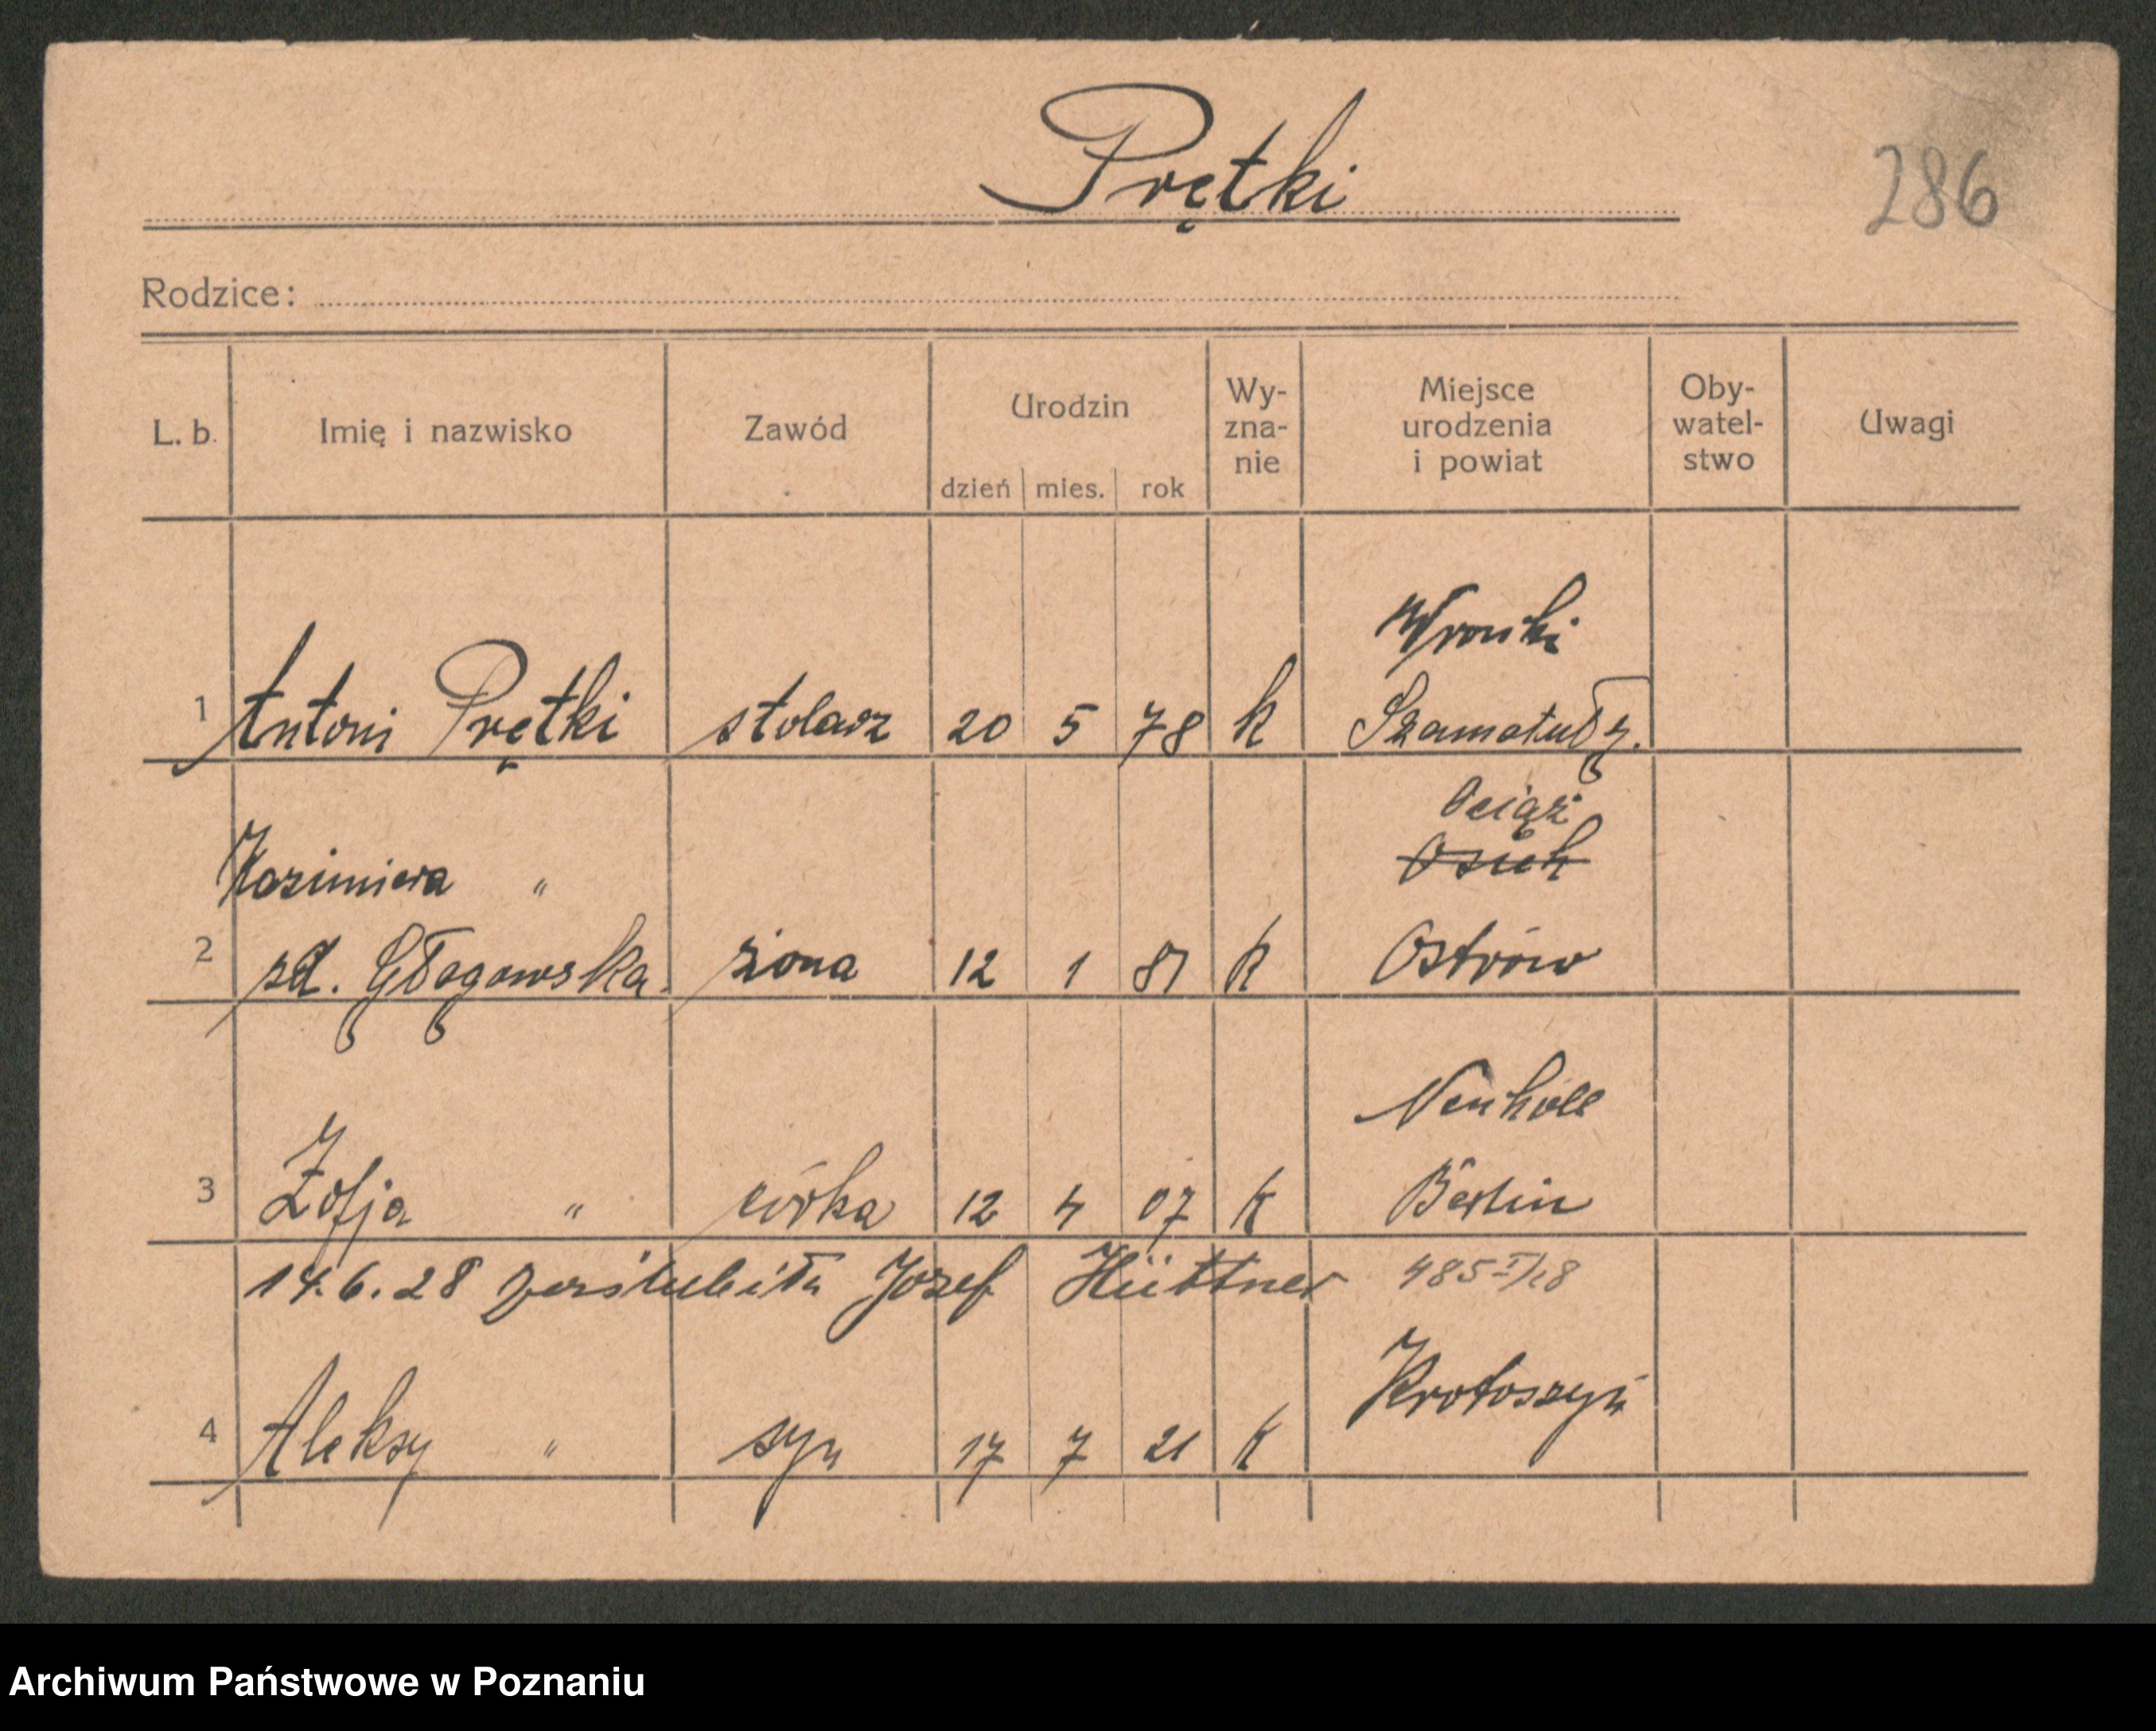 Prętki
286
Rodzice:
L. b. Imię i nazwisko Zawód Urodzin dzień mies. rok Wy-zna-nie Miejsce urodzenia i powiat Oby-watel-stwo Uwagi
Wronki
1 Antoni Prętki stolarz 20 5 78 k Szamotuły.
Ociąż
Kazimiera " Osiek
2 zd. Głogowska. żona 12 1 81 k Ostrów
3 Zofja " córka 12 4 07 k Berlin
14.6.28 zaślubiła Jozef Hüttner
Krotoszyń
4 Aleksy " syn 17 7 21 k
Archiwum Państwowe w Poznaniu